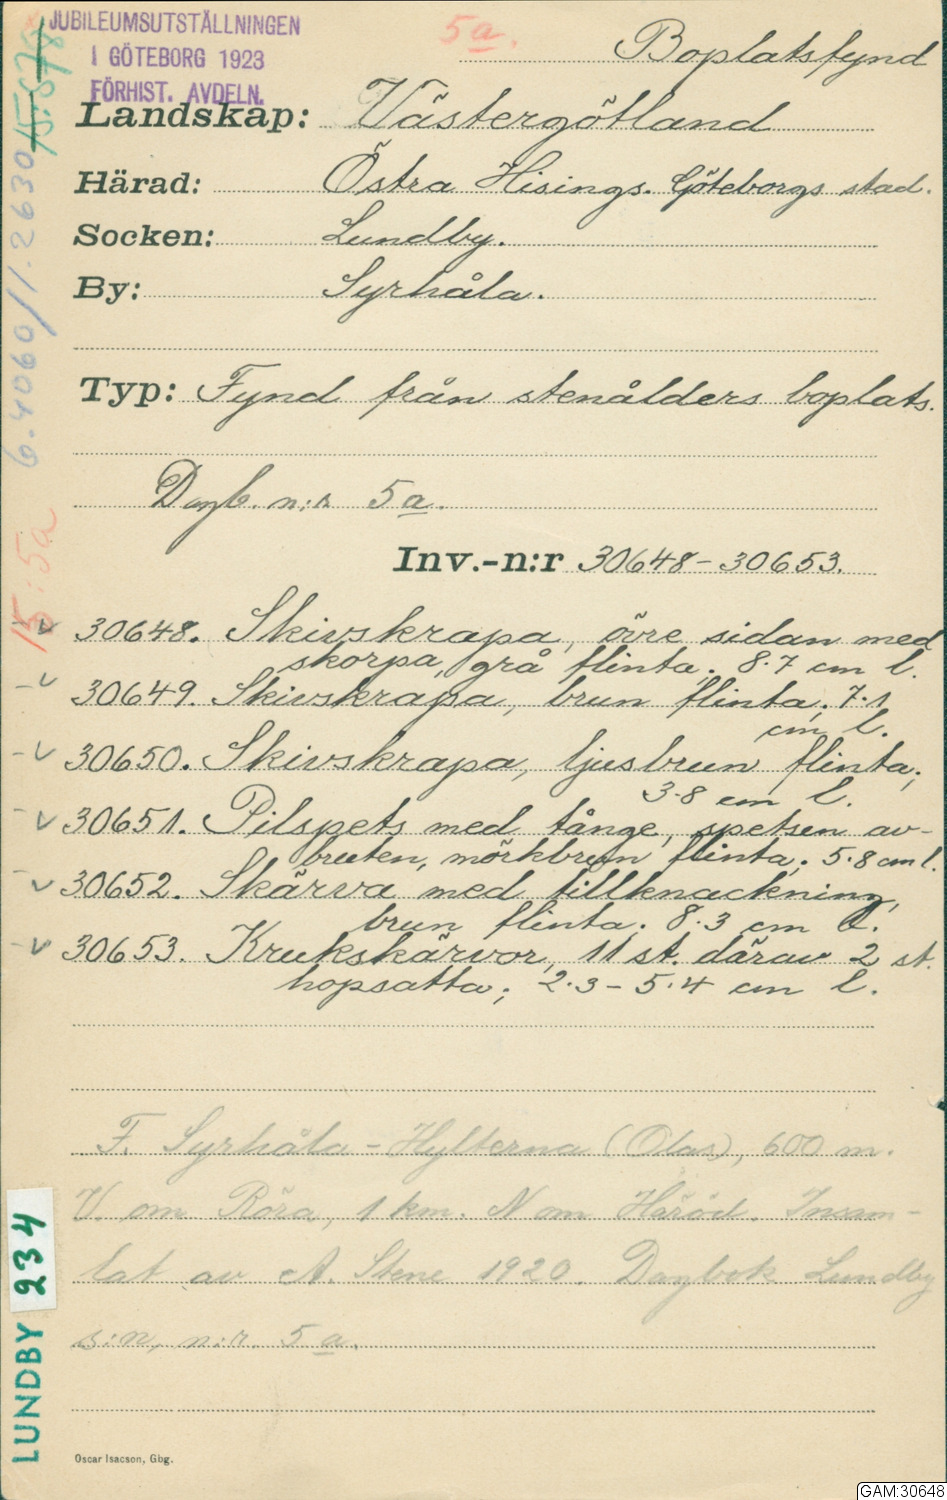 JUBILEUMSUTSTÄLLNINGEN
I GÖTEBORG 1923
FÖRHIST. AVDELN.
5a.
Boplatsfynd
Landskap: Västergötland
Härad: Östra Hisings. Göteborgs stad.
Socken: Lundby.
By: Syrhåla.
Typ: Fynd från stenålders boplats.
Dagb. n:r 5a.
Inv.-n:r 30648-30653.
30648. Skivskrapa, övre sidan med
skorpa, grå flinta; 8.7 cm l.
30649. Skivskrapa, brun flinta; 7.1
cm l.
30650. Skivskrapa, ljusbrun flinta;
3.8 cm l.
30651. Pilspets med tånge, spetsen av-
bruten, mörkbrun flinta; 5.8 cm l.
30652. Skärva med tillknackning,
brun flinta; 8.3 cm l.
30653. Krukskärvor, 11 st. därav 2 st.
hopsatta; 2.3-5.4 cm l.
F. Syrhåla-Hylterna (Olas), 600 m.
V. om Röra, 1 km. N om Häröd. Insam-
lat av A. Stene 1920. Dagbok Lundby
s:n, n:r. 5a.
Oscar Isacson, Gbg.
15:5a
LUNDBY 234
GAM:30648